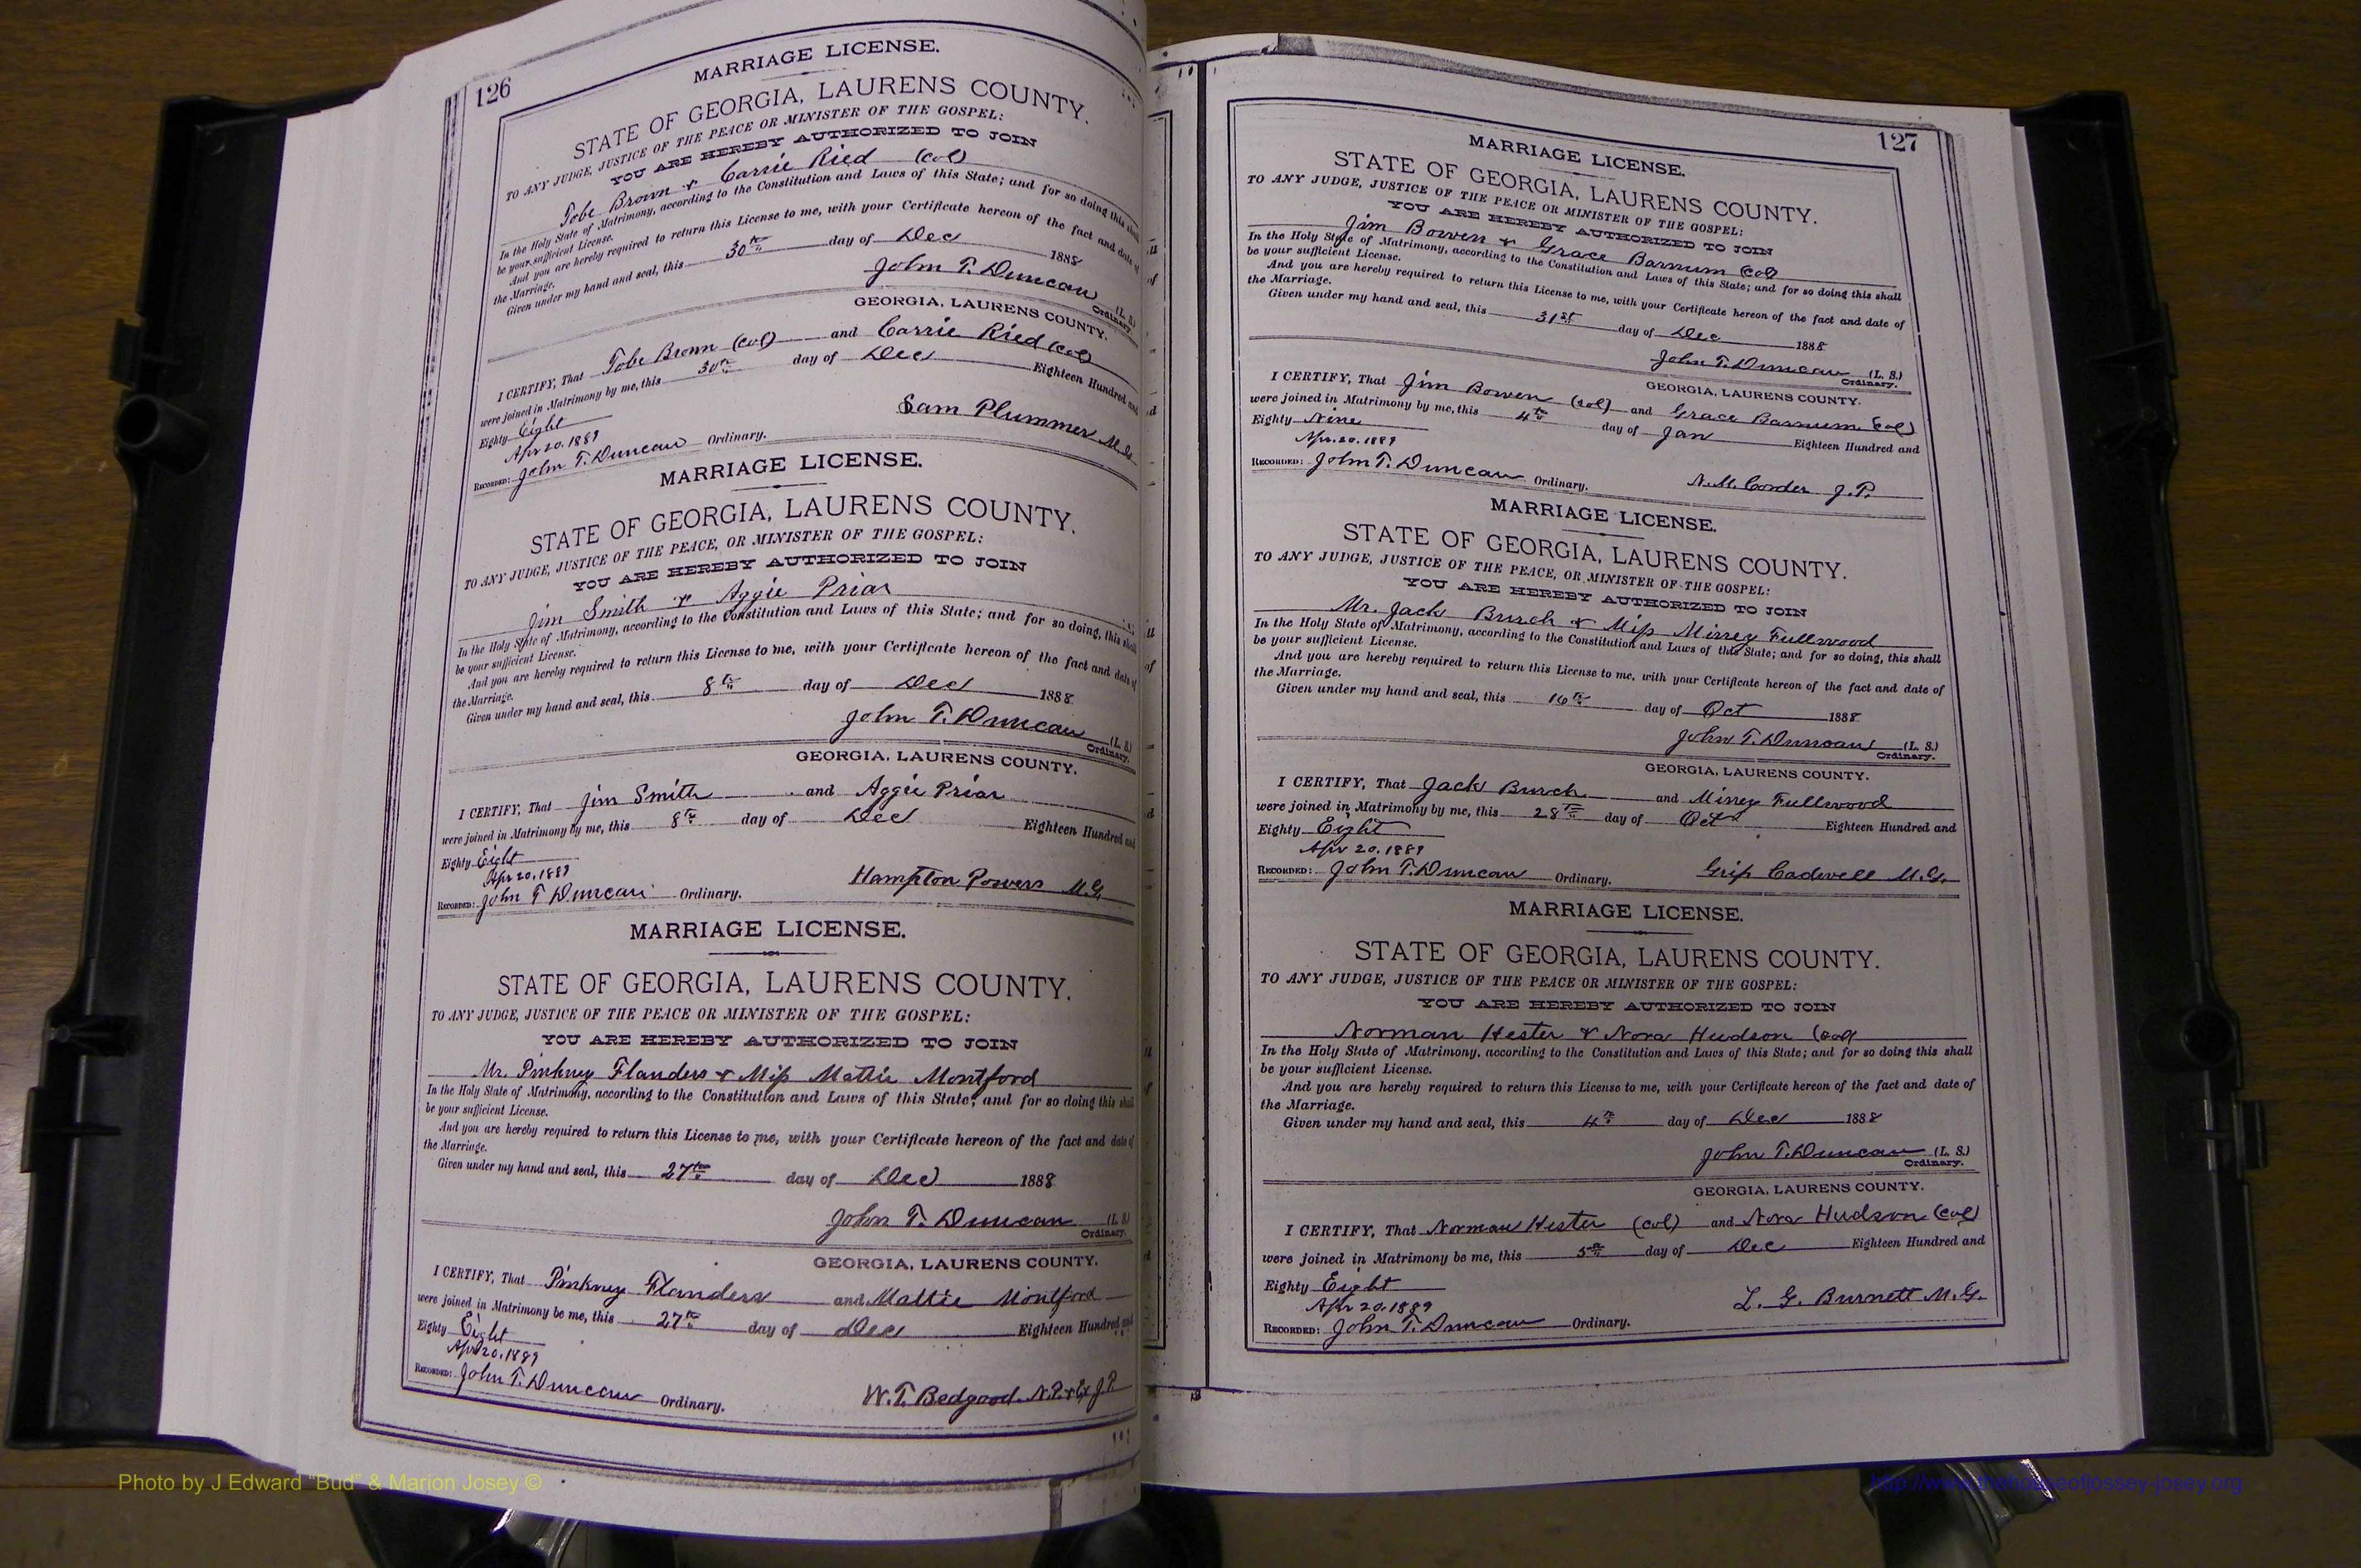 126
MARRIAGE LICENSE.
STATE OF GEORGIA, LAURENS COUNTY.
TO ANY JUDGE, JUSTICE OF THE PEACE OR MINISTER OF THE GOSPEL:
YOU ARE HEREBY AUTHORIZED TO JOIN
Tobe Brown & Carrie Ried (Col)
In the Holy State of Matrimony, according to the Constitution and Laws of this State; and for so doing this shall
be your sufficient License.
And you are hereby required to return this License to me, with your Certificate hereon of the fact and date of
the Marriage.
Given under my hand and seal, this 30th day of Dec 1888
John T. Duncan (L. S.)
Ordinary.
GEORGIA, LAURENS COUNTY.
I CERTIFY, That Tobe Brown (Col) and Carrie Ried (Col)
were joined in Matrimony by me, this 30th day of Dec Eighteen Hundred and
Eighty Eight
Apr 20, 1889
Sam Plummer M.G.
RECORDED: John T. Duncan Ordinary.
MARRIAGE LICENSE.
STATE OF GEORGIA, LAURENS COUNTY.
TO ANY JUDGE, JUSTICE OF THE PEACE, OR MINISTER OF THE GOSPEL:
YOU ARE HEREBY AUTHORIZED TO JOIN
Jim Smith & Aggie Priar
In the Holy State of Matrimony, according to the Constitution and Laws of this State; and for so doing, this shall
be your sufficient License.
And you are hereby required to return this License to me, with your Certificate hereon of the fact and date of
the Marriage.
Given under my hand and seal, this 8th day of Dec 1888
John T. Duncan (L. S.)
Ordinary.
GEORGIA, LAURENS COUNTY.
I CERTIFY, That Jim Smith and Aggie Priar
were joined in Matrimony by me, this 8th day of Dec Eighteen Hundred and
Eighty Eight
Apr 20, 1889
Hampton Powers M.G.
RECORDED: John T Duncan Ordinary.
MARRIAGE LICENSE.
STATE OF GEORGIA, LAURENS COUNTY.
TO ANY JUDGE, JUSTICE OF THE PEACE OR MINISTER OF THE GOSPEL:
YOU ARE HEREBY AUTHORIZED TO JOIN
Mr. Pinkney Flanders & Miss Mattie Montford
In the Holy State of Matrimony, according to the Constitution and Laws of this State; and for so doing this shall
be your sufficient License.
And you are hereby required to return this License to me, with your Certificate hereon of the fact and date of
the Marriage.
Given under my hand and seal, this 27th day of Dec 1888
John T. Duncan (L. S.)
Ordinary.
GEORGIA, LAURENS COUNTY.
I CERTIFY, That Pinkney Flanders and Mattie Montford
were joined in Matrimony be me, this 27th day of Dec Eighteen Hundred and
Eighty Eight
Apr 20, 1889
RECORDED: John T. Duncan Ordinary.
W. T. Bedgood N.P. & Ex J.P.
127
MARRIAGE LICENSE.
STATE OF GEORGIA, LAURENS COUNTY.
TO ANY JUDGE, JUSTICE OF THE PEACE OR MINISTER OF THE GOSPEL:
YOU ARE HEREBY AUTHORIZED TO JOIN
Jim Bowen & Grace Barnum (Col)
In the Holy State of Matrimony, according to the Constitution and Laws of this State; and for so doing this shall
be your sufficient License.
And you are hereby required to return this License to me, with your Certificate hereon of the fact and date of
the Marriage.
Given under my hand and seal, this 31st day of Dec 1888
John T. Duncan (L. S.)
Ordinary.
GEORGIA, LAURENS COUNTY.
I CERTIFY, That Jim Bowen (Col) and Grace Barnum (Col)
were joined in Matrimony by me, this 4th day of Jan Eighteen Hundred and
Eighty Nine
Apr. 20. 1889
RECORDED: John T. Duncan Ordinary. N. M. Corder J. P.
MARRIAGE LICENSE.
STATE OF GEORGIA, LAURENS COUNTY.
TO ANY JUDGE, JUSTICE OF THE PEACE, OR MINISTER OF THE GOSPEL:
YOU ARE HEREBY AUTHORIZED TO JOIN
Mr. Jack Burch & Miss Mirrey Fullwood
In the Holy State of Matrimony, according to the Constitution and Laws of this State; and for so doing, this shall
be your sufficient License.
And you are hereby required to return this License to me, with your Certificate hereon of the fact and date of
the Marriage.
Given under my hand and seal, this 16th day of Oct 1888
John T. Duncan (L. S.)
Ordinary.
GEORGIA, LAURENS COUNTY.
I CERTIFY, That Jack Burch and Mirrey Fullwood
were joined in Matrimony by me, this 28th day of Oct Eighteen Hundred and
Eighty Eight
Apr 20, 1889
RECORDED: John T. Duncan Ordinary. Cadwell M.G.
MARRIAGE LICENSE.
STATE OF GEORGIA, LAURENS COUNTY.
TO ANY JUDGE, JUSTICE OF THE PEACE OR MINISTER OF THE GOSPEL:
YOU ARE HEREBY AUTHORIZED TO JOIN
Norman Hester & Nora Hudson (Col)
In the Holy State of Matrimony, according to the Constitution and Laws of this State; and for so doing this shall
be your sufficient License.
And you are hereby required to return this License to me, with your Certificate hereon of the fact and date of
the Marriage.
Given under my hand and seal, this 4th day of Dec 1888
John T. Duncan (L. S.)
Ordinary.
GEORGIA, LAURENS COUNTY.
I CERTIFY, That Norman Hester (Col) and Nora Hudson (Col)
were joined in Matrimony be me, this 5th day of Dec Eighteen Hundred and
Eighty Eight
Apr 20, 1889
L. G. Burnett M.G.
RECORDED: John T. Duncan Ordinary.
Photo by J Edward "Bud" & Marion Josey ©
http://www.thehouseofjossey-josey.org